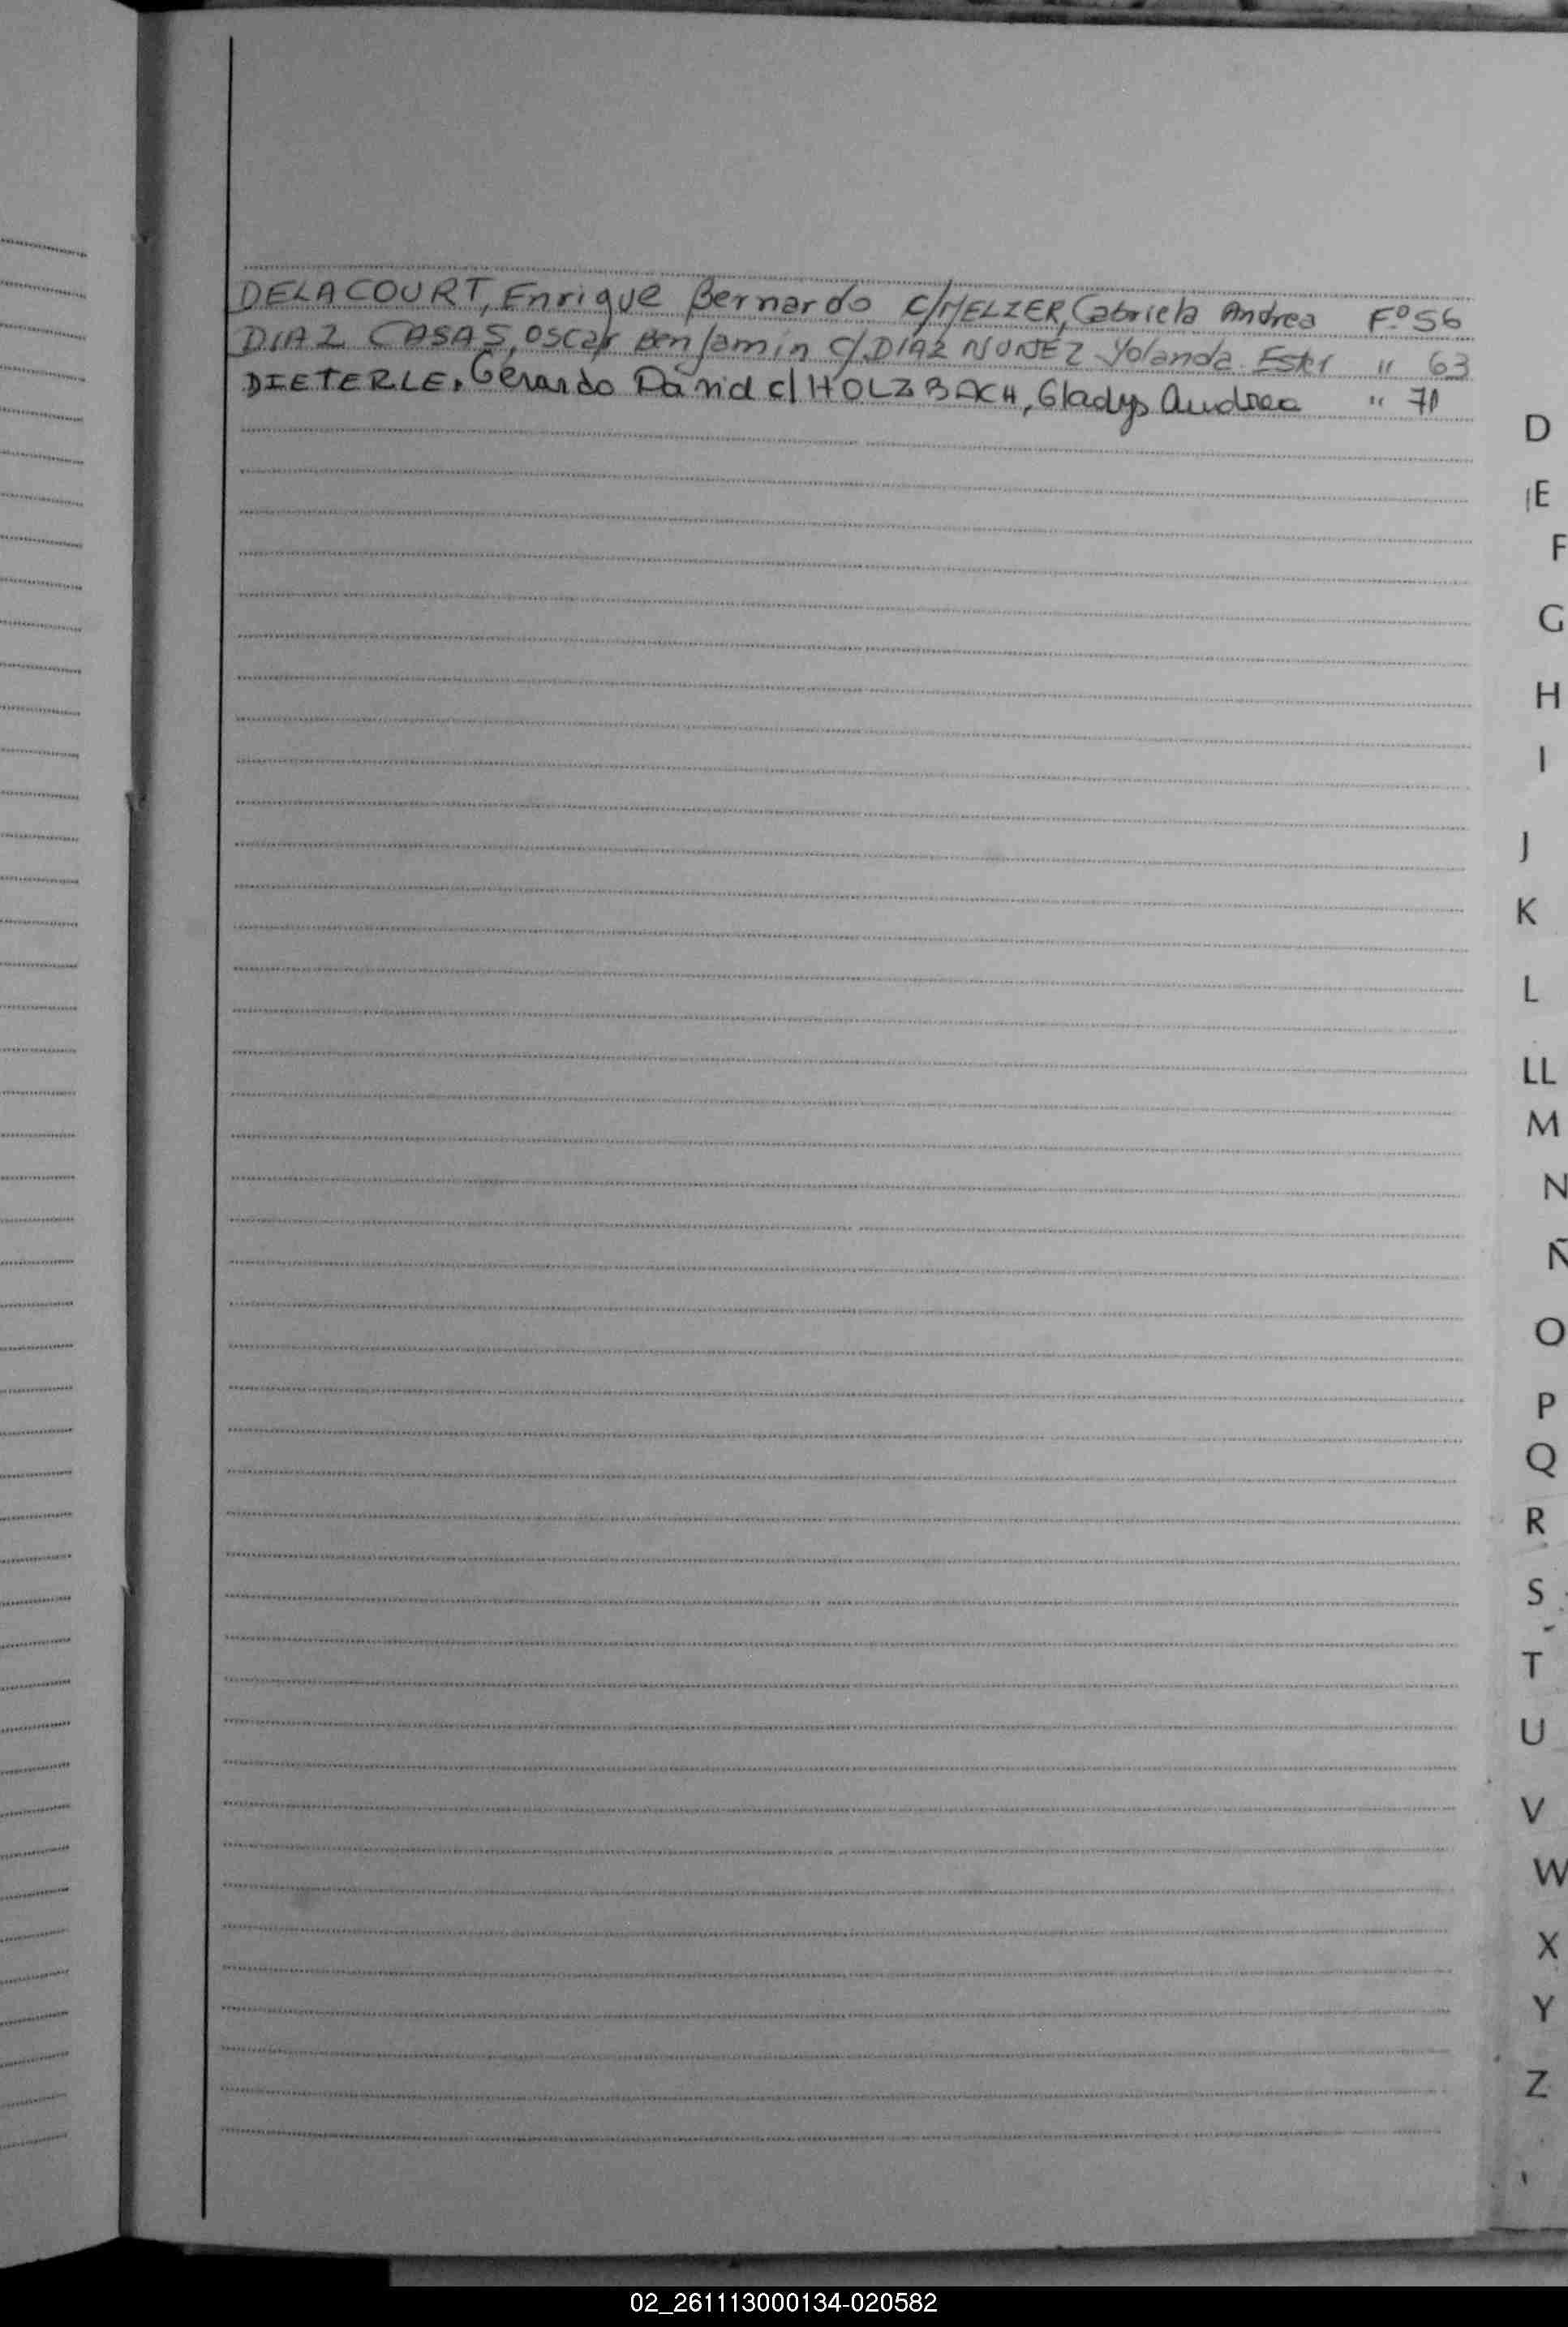 DELACOURT, Enrique Bernardo C/MELZER, Gabriela Andrea F.º 56
DIAZ CASAS, Oscar Benjamin C/DIAZ NUÑEZ Yolanda Ester " 63
DIETERLE, Gerardo David c/ HOLZBACH, Gladys Andrea " 71
D
E
F
G
H
I
J
K
L
LL
M
N
Ñ
O
P
Q
R
S
T
U
V
W
X
Y
Z
02_261113000134-020582